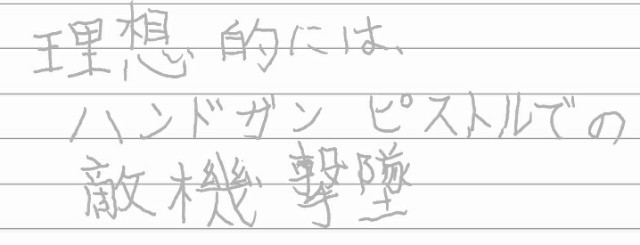 理想的には、
ハンドガン ピストルでの
敵機撃墜